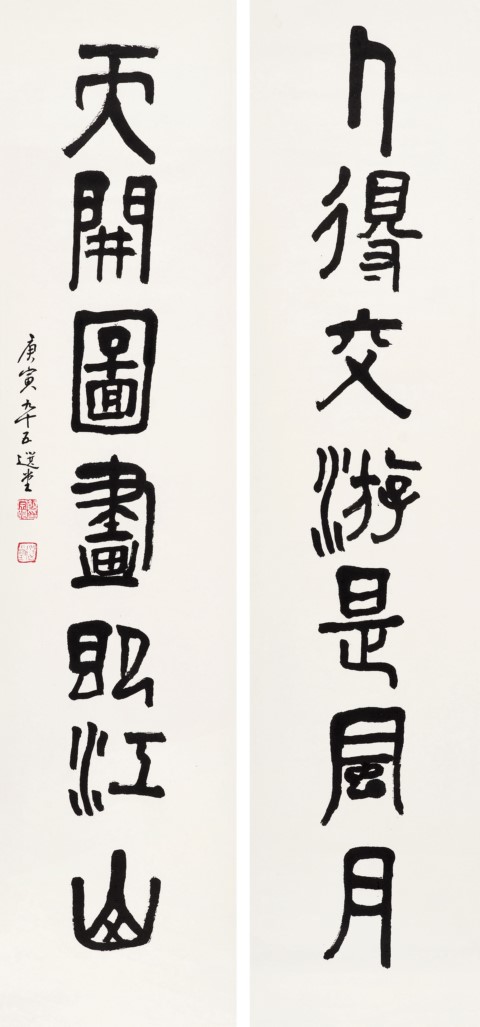 人得交游是風月
天開圖畫即江山
庚寅九十五選堂